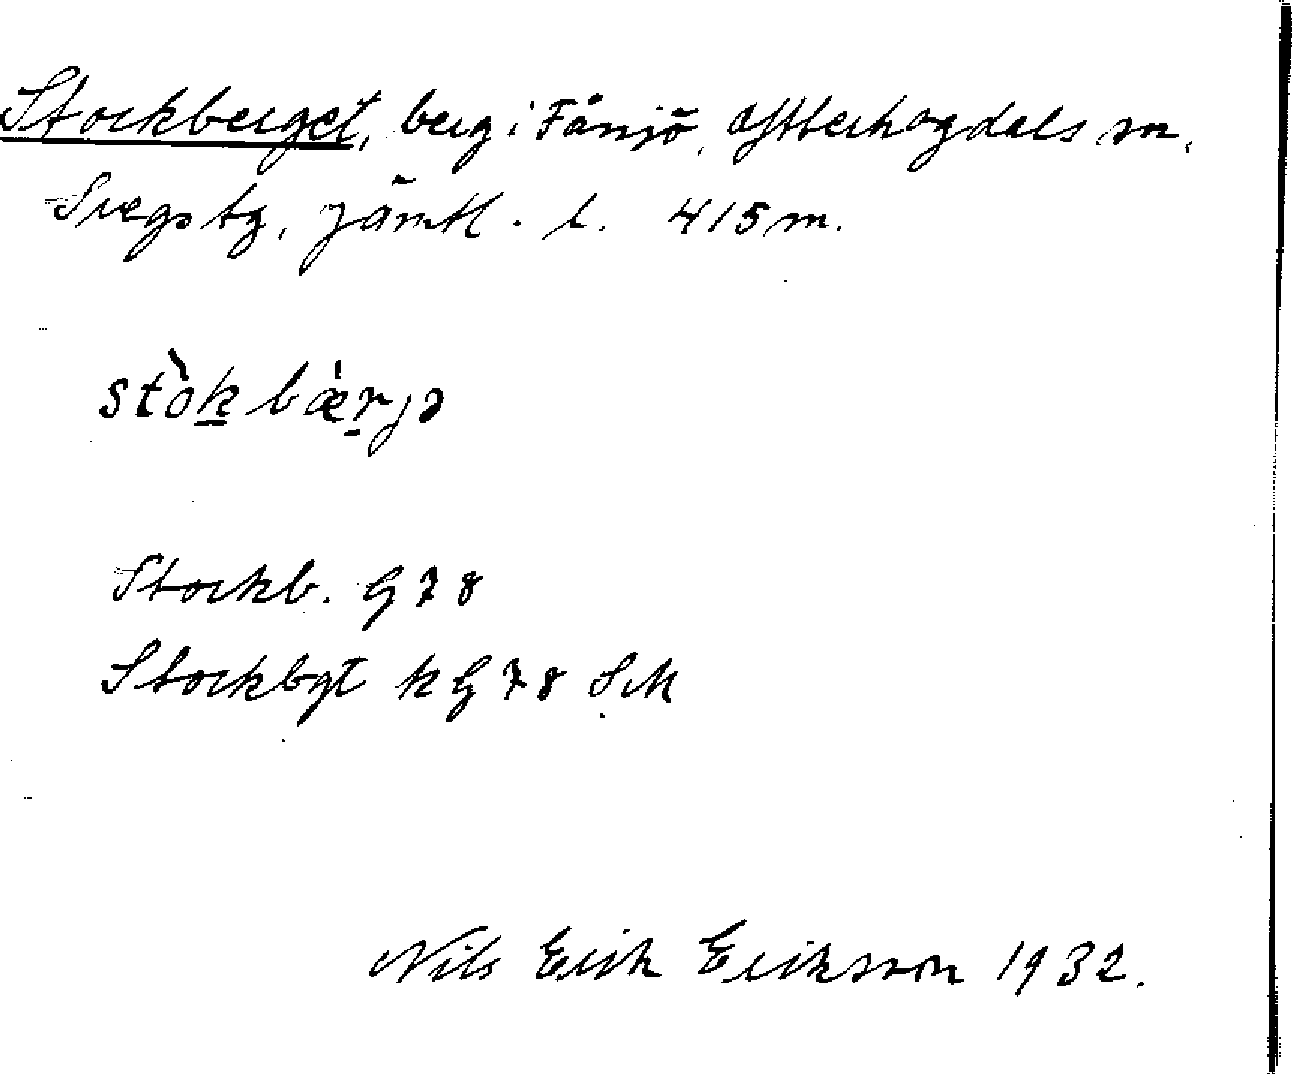 Stockberget, berg i Fånsjö, Ytterhogdals sn,
Svegs tg, Jämtl. l. 415 m.
stòk bǽrjə
Stockb. G 78
Stockbgt k G 78 SM
Nils Erik Eriksson 1932.